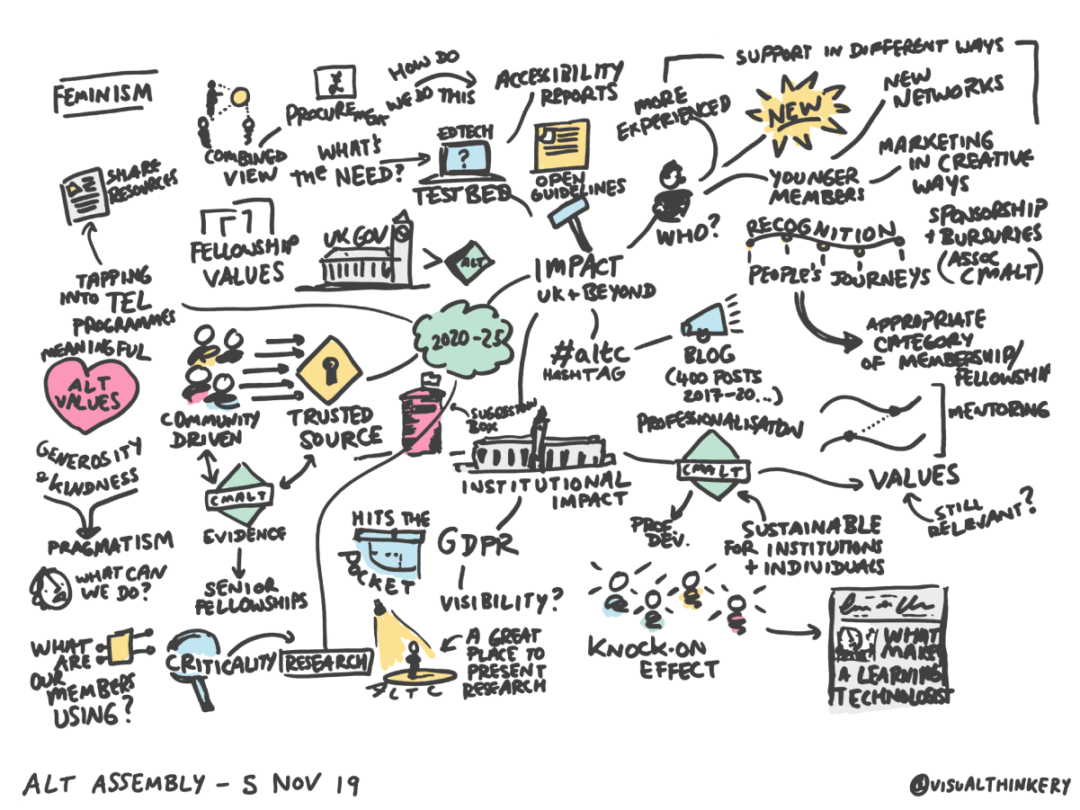 FEMINISM
COMBINED
VIEW
£
PROCUREMENT
HOW DO
WE DO THIS
WHAT'S
THE NEED?
EDTECH
?
TESTBED
ACCESSIBILITY
REPORTS
OPEN
GUIDELINES
MORE
EXPERIENCED
SUPPORT IN DIFFERENT WAYS
NEW
NEW
NETWORKS
YOUNGER
MEMBERS
MARKETING
IN CREATIVE
WAYS
WHO?
RECOGNITION
PEOPLE'S JOURNEYS
SPONSORSHIP
+ BURSURIES
(ASSOC
CMALT)
SHARE
RESOURCES
FELLOWSHIP
VALUES
UK GOV
ALT
IMPACT
UK + BEYOND
TAPPING
INTO TEL
PROGRAMMES
2020-25
#altc
HASHTAG
BLOG
(400 POSTS
2017-20...)
APPROPRIATE
CATEGORY
OF MEMBERSHIP/
FELLOWSHIP
MEANINGFUL
ALT
VALUES
GENEROSITY
& KINDNESS
PRAGMATISM
WHAT CAN
WE DO?
COMMUNITY
DRIVEN
TRUSTED
SOURCE
SUGGESTION
BOX
CMALT
EVIDENCE
SENIOR
FELLOWSHIPS
INSTITUTIONAL
IMPACT
PROFESSIONALISATION
CMALT
MENTORING
VALUES
STILL
RELEVANT?
PROF
DEV.
SUSTAINABLE
FOR INSTITUTIONS
+ INDIVIDUALS
HITS THE
POCKET
GDPR
VISIBILITY?
WHAT
ARE
OUR
MEMBERS
USING?
CRITICALITY
RESEARCH
ALTC
A GREAT
PLACE TO
PRESENT
RESEARCH
KNOCK-ON
EFFECT
WHAT
MAKES
A LEARNING
TECHNOLOGIST
ALT ASSEMBLY - 5 NOV 19
@VISUALTHINKERY